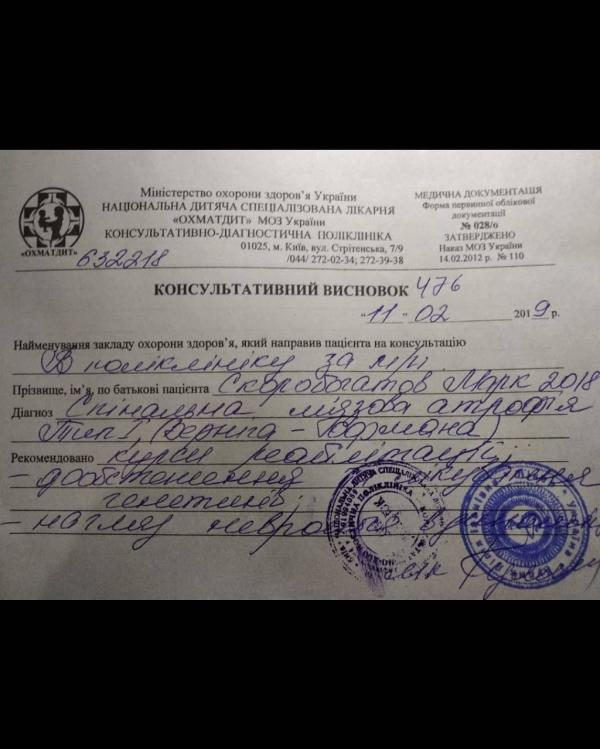 Міністерство охорони здоров'я України
НАЦІОНАЛЬНА ДИТЯЧА СПЕЦІАЛІЗОВАНА ЛІКАРНЯ
«ОХМАТДИТ» МОЗ України
КОНСУЛЬТАТИВНО-ДІАГНОСТИЧНА ПОЛІКЛІНІКА
01025, м. Київ, вул. Стрітенська, 7/9
/044/ 272-02-34; 272-39-38
МЕДИЧНА ДОКУМЕНТАЦІЯ
Форма первинної облікової
документації
№ 028/о
ЗАТВЕРДЖЕНО
Наказ МОЗ України
14.02.2012 р. № 110
«ОХМАТДИТ»
632218
КОНСУЛЬТАТИВНИЙ ВИСНОВОК 476
"11" 02 2019 р.
Найменування закладу охорони здоров'я, який направив пацієнта на консультацію
В поліклініку за м/п
Прізвище, ім'я, по батькові пацієнта Скоробогатов Марк 2018
Діагноз Спінальна м'язова атрофія
Тип I, (Верніга - Гофмана)
Рекомендовано курси реабілітації,
- дообстеження
генетик
- нагляд невролога